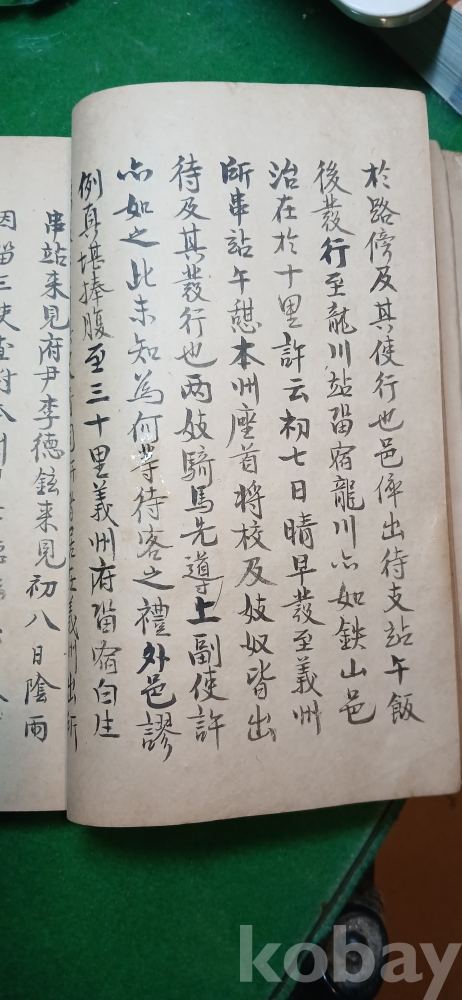 於路傍及其使行也邑倅出待支站午飯
後發行至龍川站留宿龍川亦如鉄山邑
治在於十里許云初七日晴早發至義州
所串站午憇本州座首將校及妓奴皆出
待及其發行也两妓騎馬先導上副使許
亦如之此未知為何等待客之禮外邑謬
例真堪捧腹至三十里義州府留宿自生
串站来見府尹李德鉉来見初八日陰雨
因留三使査對本州
kobay